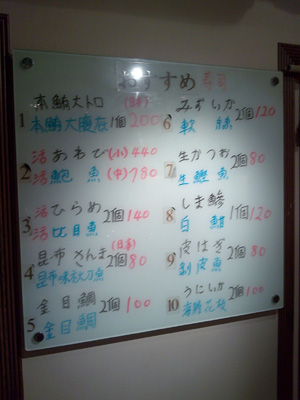 おすすめ寿司
本鮪大トロ (日本)
1 本鮪大腹 1個 200
2 活あわび (小) 440
活鮑魚 (中) 780
3 活ひらめ 2個 140
活比目魚
昆布さんま (日本)
4 昆布味秋刀魚 2個 80
金目鯛 2個 100
5 金目鯛
みずいか 2個 120
6 軟絲
7 生かつお 2個 80
生鰹魚
8 しま鯵 1個 120
白魽
9 皮はぎ 2個 80
剝皮魚
うにいか 2個 100
10 海膽花枝